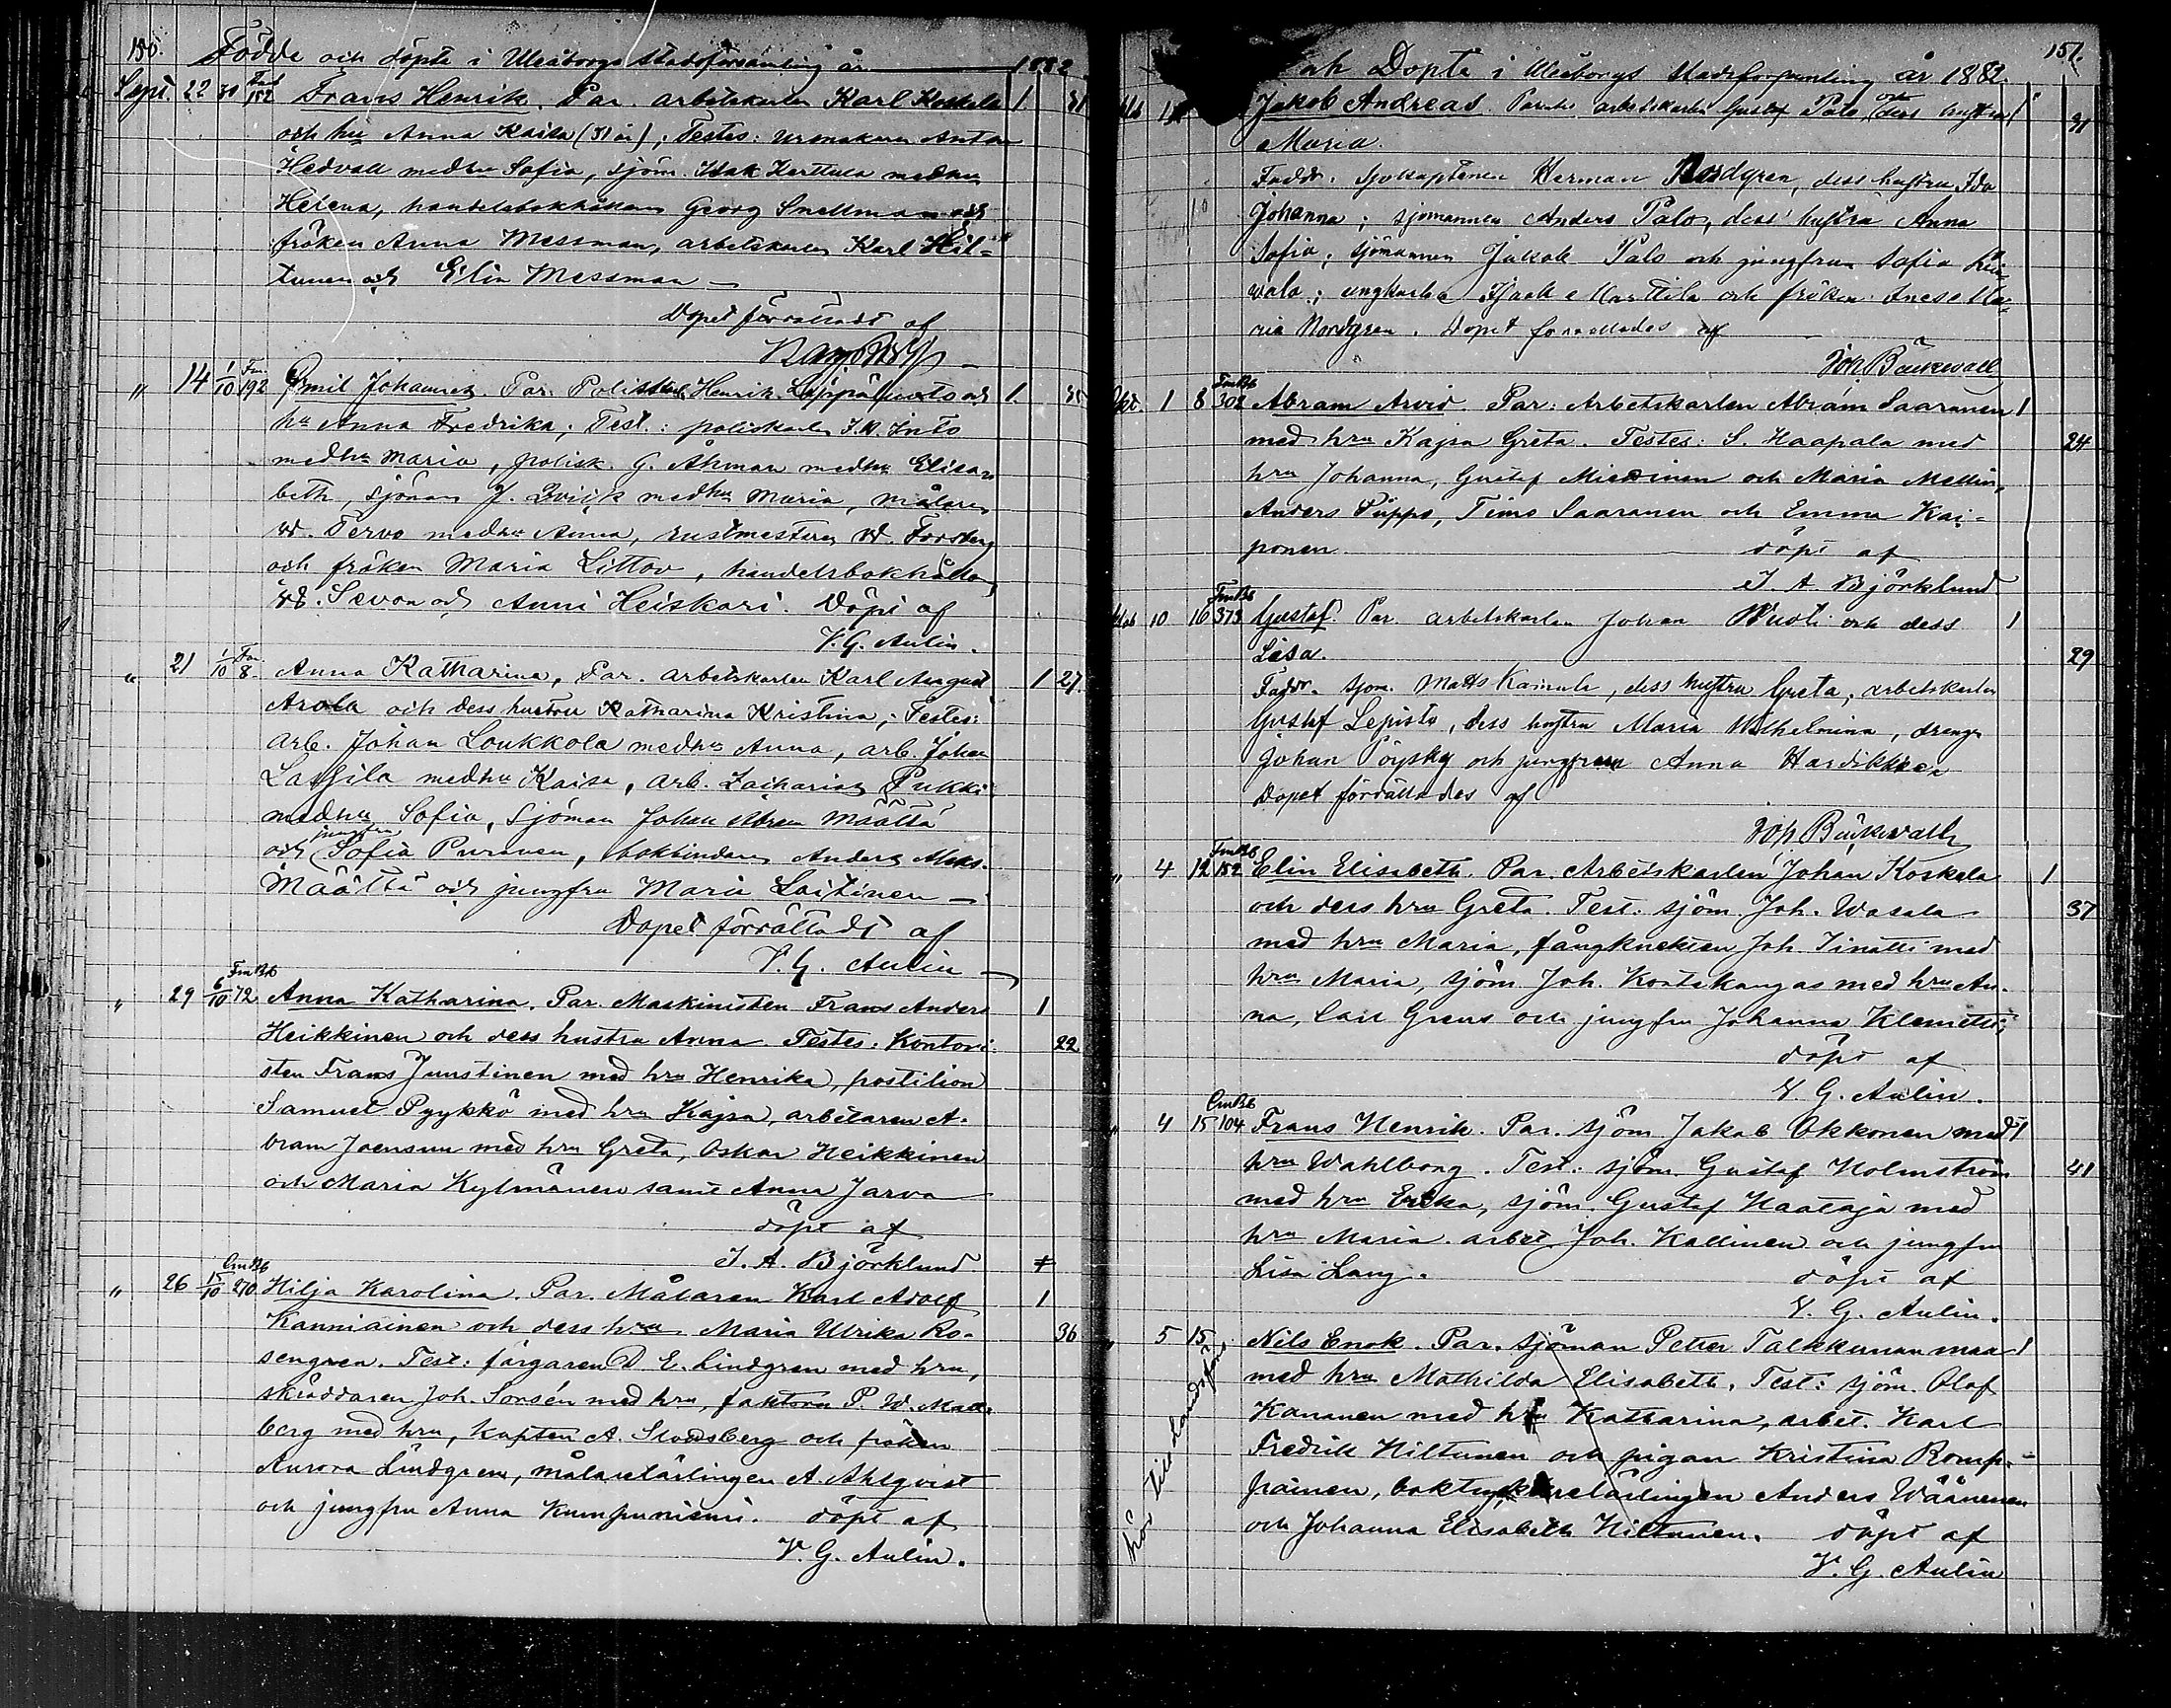 150.
Födde och döpte i Uleåborgs stadsförsamling år 1882
Sept. 22 30 Fmb 152 Frans Henrik. Par. arbetskarlen Karl Koskela 1 31
och hu Anna Kaisa (31 år); Testes: urmakaren Anton
Hedvall medhu Sofia, sjöm. Isak Karttula medhu
Helena, handelsbokhållaren Georg Snellman och
fröken Anna Messman, arbetskarlen Karl Hil-
tunen och Elin Messman —
Dopet förrättadt af
" 14 1/10 Fm 192 Emil Johannes. Par. Poliskarl Henrik och 1. 35
hu Anna Fredrika; Test.: poliskarlen J. W. Into
medhu Maria, polisk. G. Åhman medhu Elisa-
beth, sjöman J. medhu Maria, målaren
W. Tervo medhu Anna, rustmästaren W. Forsberg
och fröken Maria Littow, handelsbokhållaren
Sevon och Anni Heiskari. Döpt af
V. G. Aulin.
" 21 1/10 Fm 8. Anna Katharina, Par. arbetskarlen Karl August 1 27.
Arola och dess hustru Katharina Kristina; Testes:
Arb. Johan Loukkola medhu Anna, arb. Johan
Lassila medhu Kaisa, arb. Zacharias Pukki
medhu Sofia, Sjöman Johan Abram Määttä
och jungfru Sofia Puranen, bokbindaren Anders Aleks.
Määttä och jungfru Maria Laitinen —
Dopet förrättadt af
V. G. Aulin —
" 29 6/10 FmBb 72 Anna Katharina. Par. Maskinisten Frans Anders 1
Heikkinen och dess hustru Anna. Testes: Kontori- 22
sten Frans Juustinen med hru Henrika, postilion
Samuel Pyykkö med hru Kajsa, arbetaren A-
bram Joensuu med hru Greta, Oskar Heikkinen
och Maria Kylmänen samt Anna Jarva
döpt af
J. A. Björklund
" 26 15/10 CmBb 270 Hilja Karolina. Par. Målaren Karl Adolf 1
Kanniainen och dess hru Maria Ulrika Ro- 36
sengren. Test: färgaren D E. Lindgren med hru,
skräddaren Joh. Sorsén med hru, faktorn P. W. Mall-
berg med hru, Kapten A. Slodsberg och fröken
Aurora Lindgren, målarelärlingen A. Ahlqvist
och jungfru Anna Kumpuniemi. döpt af
V. G. Aulin.
151.
och Döpte i Uleåborgs stadsförsamling år 1882.
Jakob Andreas. Par. arbetskarlen Gustaf Palo, och dess hustru 1 31
Maria.
Faddr. Sjökaptenen Herman Nordgren, dess hustru Ida
Johanna; sjömannen Anders Palo, dess hustru Anna
Sofia; sjömannen Jakob Palo och jungfrun Sofia
wala; ungkarlen Isak Marttila och fröken Ines Ma-
ria Nordgren. Dopet förrättades af
Joh. Bäckwall
Okt. 1 8 FmBb 302 Abram Arvid. Par: Arbetskarlen Abram Saaranen 1
med hru Kajsa Greta. Testes: S. Haapala med 24
hru Johanna, Gustaf Miettinen och Maria Mellin,
Anders Piippo, Timo Saaranen och Emma Kai-
ponen. döpt af
J. A. Björklund
10 16 FmBb 373 Gustaf. Par. arbetskarlen Johan och dess 1
Lisa. 29
Faddr. sjöm. Matts Kainula, dess hustru Greta; arbetskarlen
Gustaf Lepistö, dess hustru Maria Wilhelmina, drengen
Johan Pöysky och jungfrun Anna Hardikkien
Dopet förrättades af
Joh. Bäckwall
" 4 12 FmBb 152 Elin Elisabeth. Par. Arbetskarlen Johan Koskela 1
och dess hru Greta. Test: sjöm. Joh. Wasala 37
med hru Maria, fångknekten Joh. Iinatti med
hru Maria, sjöm Joh. Kontskangas med hru An-
na, Carl Grens och jungfru Johanna Klemetti;
döpt af
V. G. Aulin.
" 4 15 CmBb 104 Frans Henrik. Par. sjöm Jakob Okkonen med 1
hru Wahlborg. Test: sjöm. Gustaf Holmström 41
med hru Erika, sjöm. Gustaf Haataja med
hru Maria. arbet. Joh. Kallinen och jungfru
Lisa Lang. döpt af
V. G. Aulin.
" 5 15 Nils Enok. Par. sjöman Petter Talkkunanmaa 1
med hru Mathilda Elisabeth. Test: sjöm. Olof
Kananen med hru Katharina, arbet. Karl
Fredrik Hiltunen och pigan Kristina Romp-
painen, boktryckarelärlingen Anders Wäänenen
och Johanna Elisabeth Hiltunen. döpt af
V. G. Aulin
hör till Landsförs